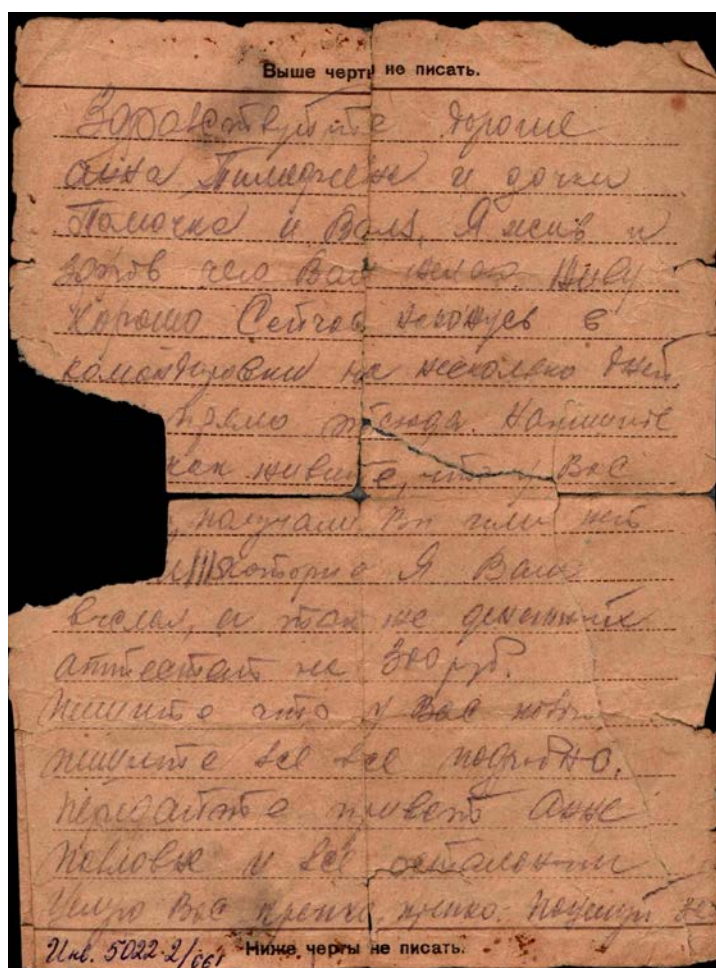 Выше черты не писать.
Здравствуйте дорогие
Анна Тимофеевна и дочки
Томочка и Валя. Я жив и
здоров чего Вам желаю. Живу
хорошо Сейчас нахожусь в
командировки на несколько дней.
прямо отсюда. Напишите
как живите, что у Вас
получали Вы или нет
которые Я Вам
выслал, а так же денежный
аттестат на 300 руб.
Пишите что у Вас нового
пишите все все подробно.
Передайте привет Анне
Павловне и все остальным
Целую Вас крепко, крепко. Поцелуй
Инв. 5022-2/661
Ниже черты не писать.